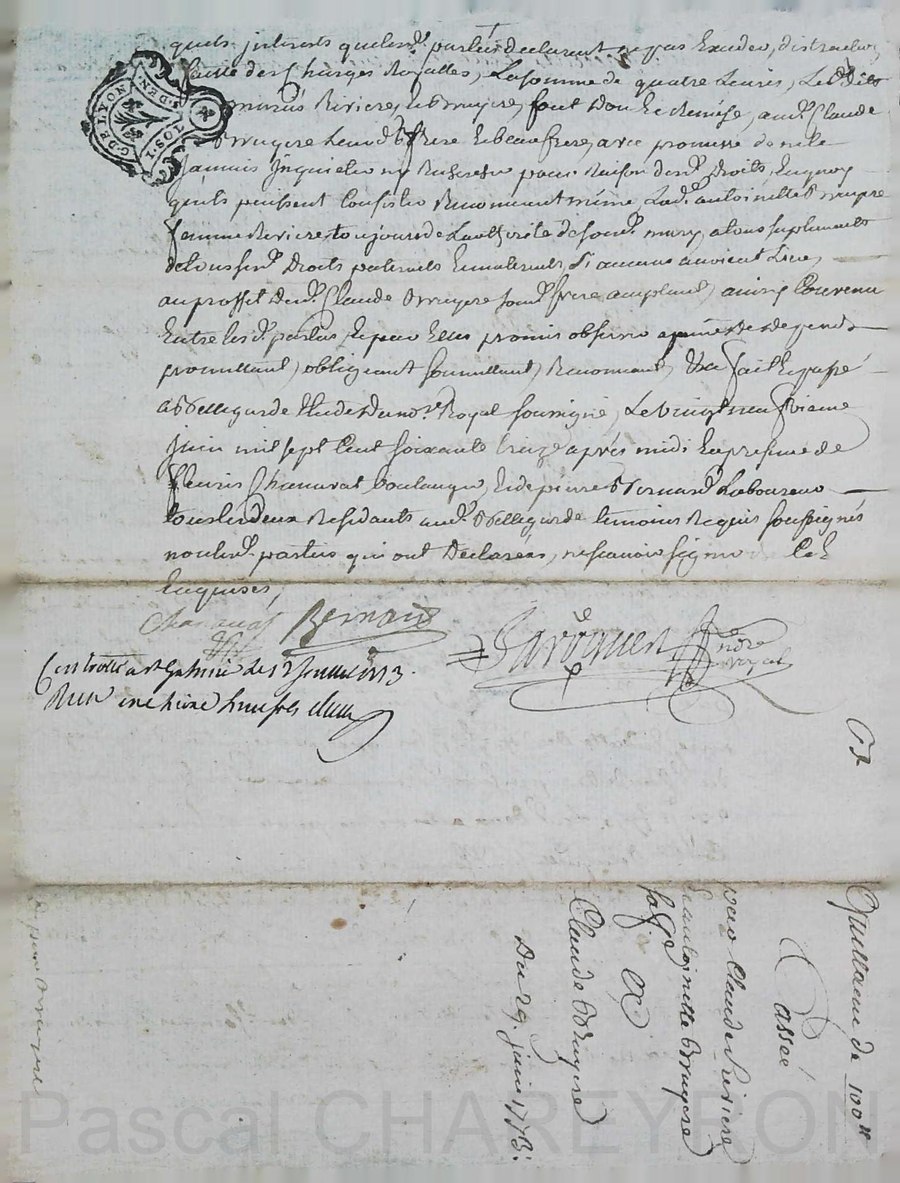 quels interets quelesd. parties declarent ne pas Exceder, distraction
faitte des Charges Royalles, La somme de quatre Livres, Lesdits
mariés Riviere et Bruyere, font don Et Remise, aud. Claude
Bruyere Leurd. frere Et beaufrere, avec promesse de ne le
Jamais Inquieter ny Rechercher pour Raison desd. Droits, En quoy
quils puissent Consister Renonceant même Lad. antoinette Bruyere
femme Riviere toujours de Lauthorité de sond. mary, a tous suplements
de tous sesd. Droits paternels Et maternels, Si aucuns avoient Lieu,
au proffit dud. Claude Bruyere sond. frere acceptant, ainsy Convenu
Entre lesd. parties Et par Elles promis observer a peine de depends
promettant, obligeant soumettant, Renonceant, Fait Et passé
a Bellegarde Etude du no.re Royal soussigné, Le vingt neuf vieme
juin mil sept Cent soixante treize après midi En presence de
fleuris Chanavat boulanger, Et de pierre Bernard Laboureur
tous les deux Residants aud. Bellegarde temoins Requis soussignés
non lesd. parties qui ont Declarées, ne scavoir signer
Enquises,
Chanavat Bernard
no.re royal
Controllé a St Galmier le 12 Juillet 1773.
Reçu une livre
G.DE LYON
I.SOL
S.DEN.
Quittance de 100
passée
par Claude Riviere
Et antoinette Bruyere
sa fe
a
Claude Bruyere
Du 29. juin 1773.
Pascal CHAREYRON